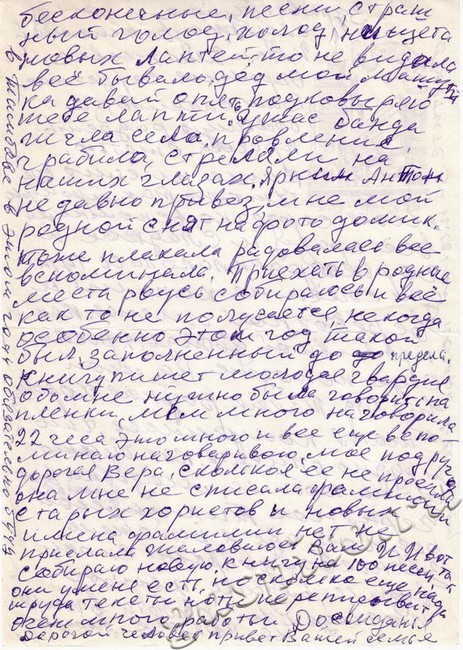 бесконечные, песни, страш
ный голод, холод, нищета
новых лаптей, то не видала
всё бывало, дед мой Машут
ка давай опять подковыряю
тебе лапти. Ужас банда
жгла села, провления,
грабила, стреляли на
наших глазах, ярким Антон
недавно привез, мне мой
родной снят на фото домик.
тоже плакала радовалась всё
вспоминала. Приехать в родные
места рвусь собираюсь и всё
как то не получается, некогда
особенно этот год такой
был, заполненный до предела.
Книгу пишет молодая гвардия
обо мне нужно была говорить на
пленки, мем много наговорила
22 часа это много и все еще вспо-
минаю наговариваю, мое подруга
дорогая Вера, сколько я ее не просила
она мне не списала фамилии
старых хористов и новых
имена фамилии нет не
прислала жаловалось Вам И И вот так
собираю новую книгу на 100 песен,
они у меня есть, но сколько еще надо
труда тексты ноты переписыват
очень много работы Досвиданья
Дорогой человек привет Вашей семье
в Тамбове в этом году обязательно буду